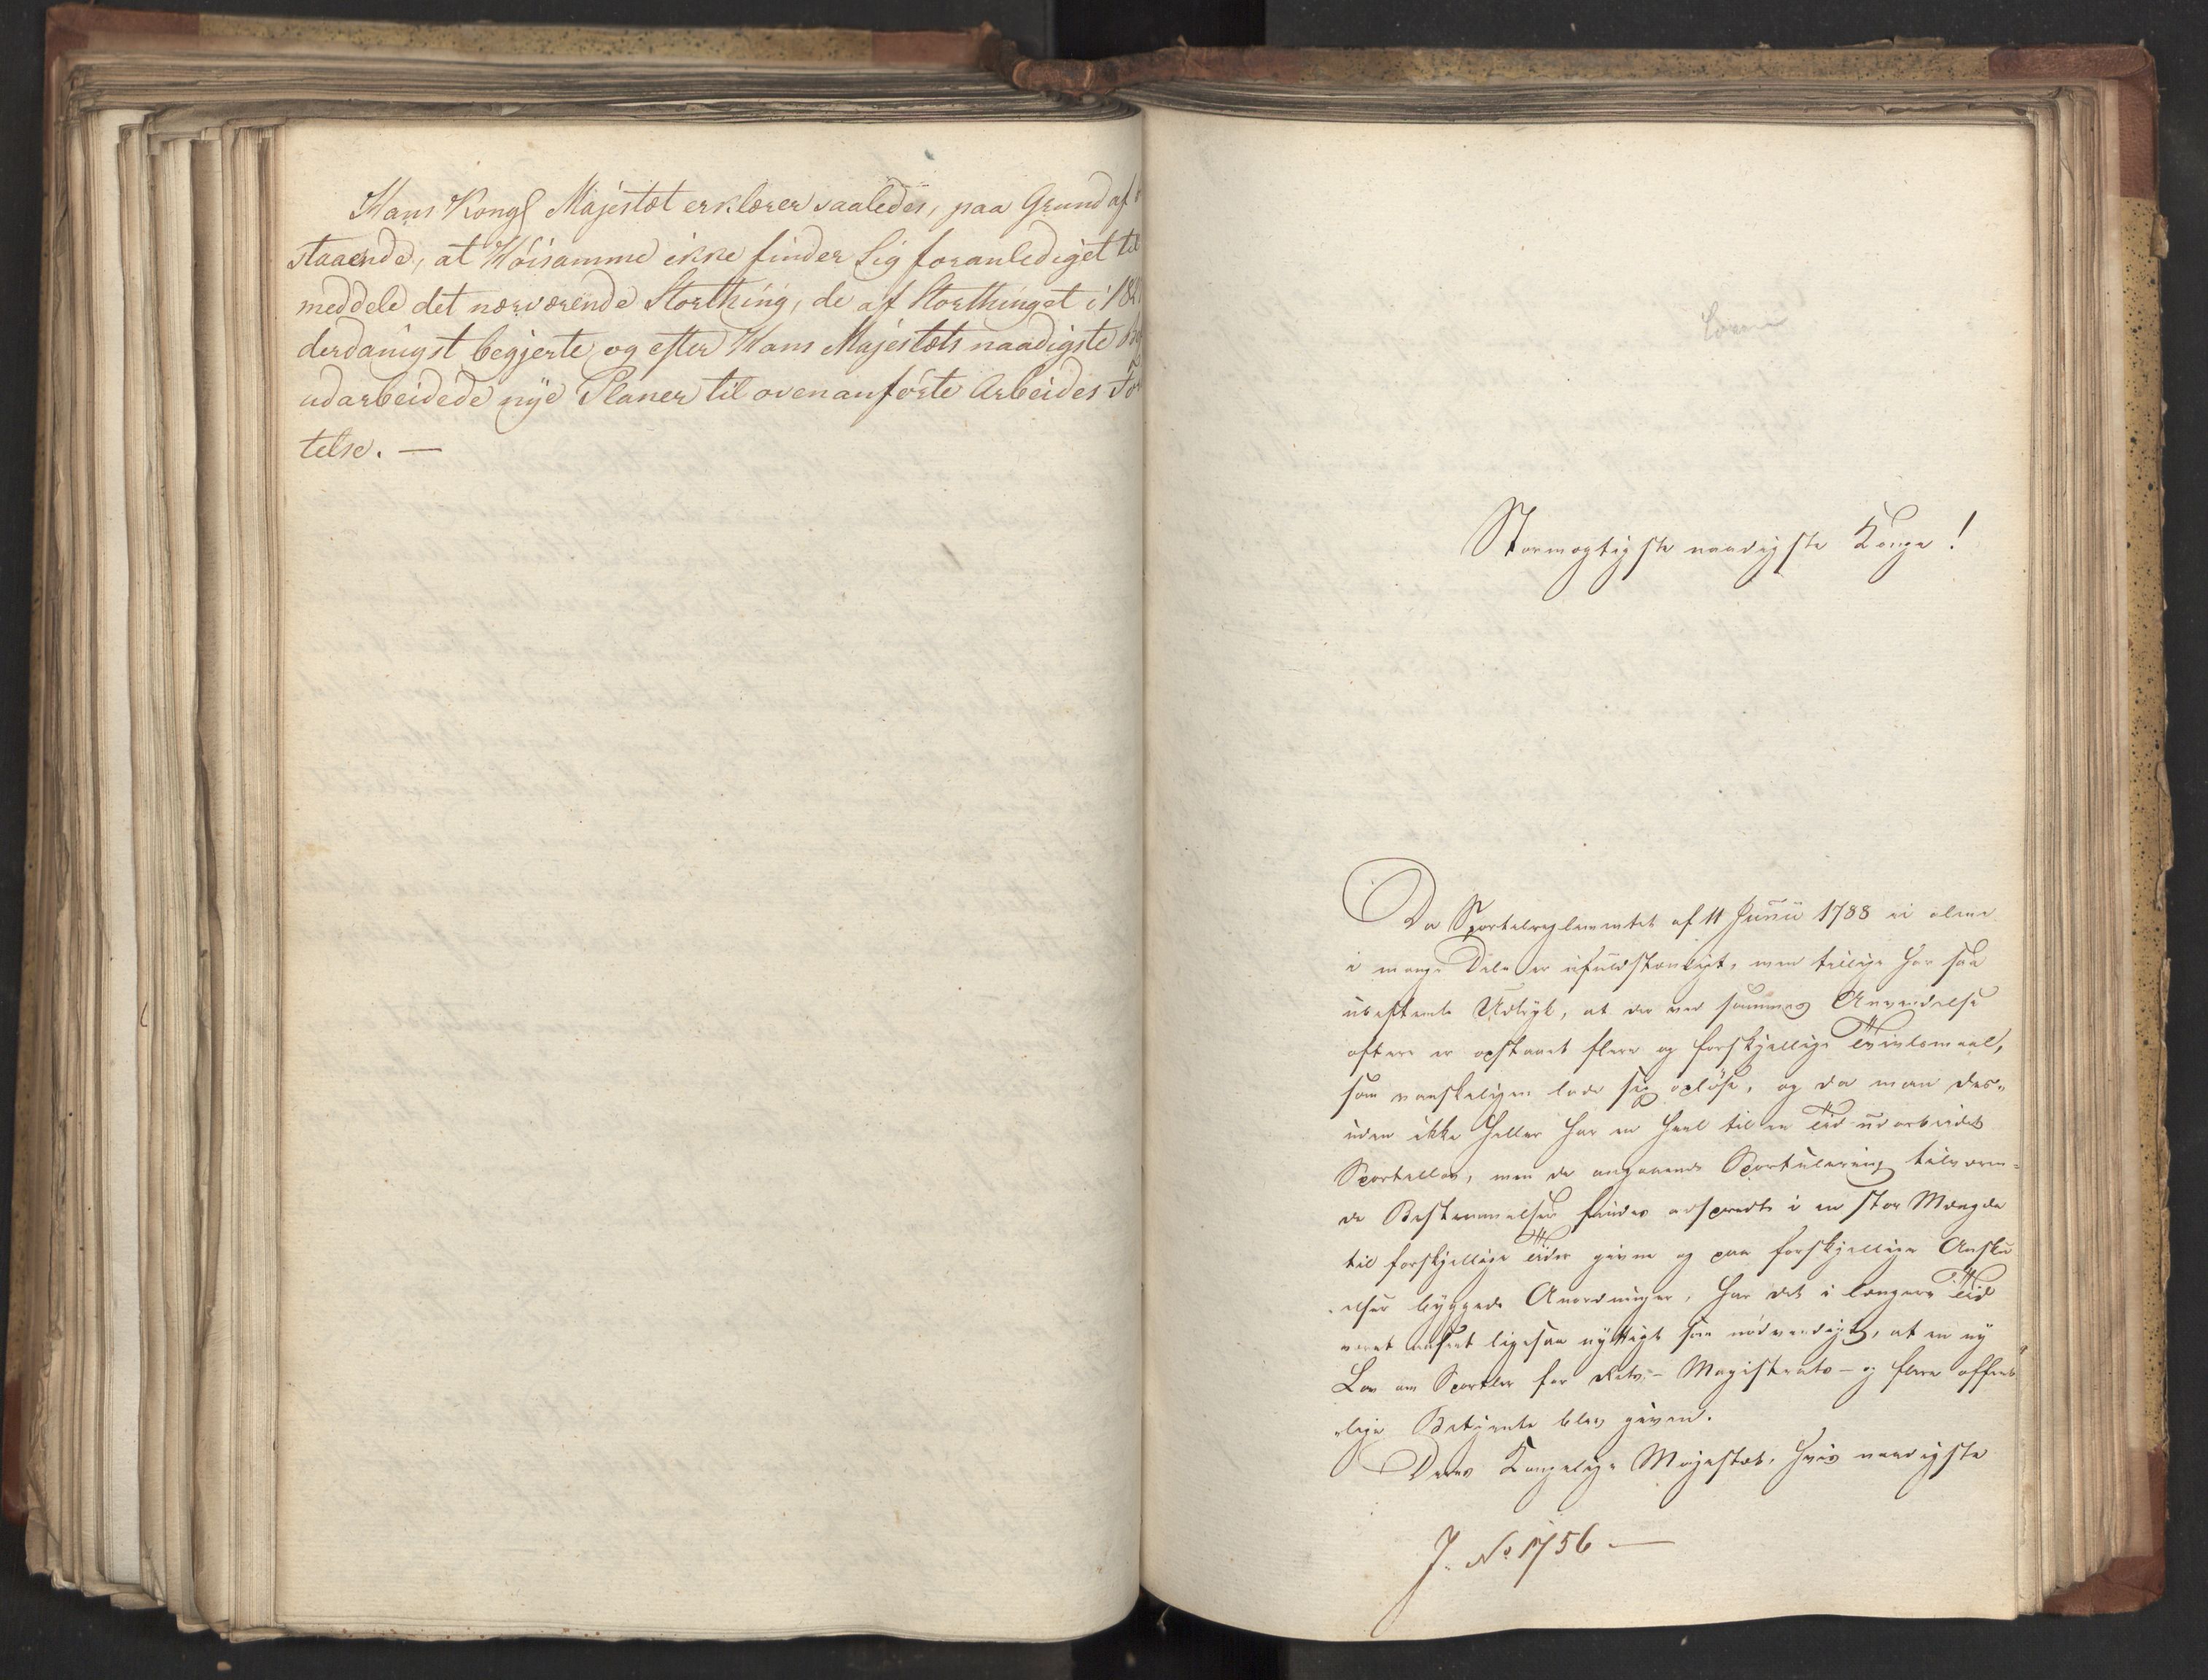 Hans Kongl Majestæt erklærer saaledes, paa Grund af
staaende, at Høisamme ikke finder Sig foranlediget til
meddele det nærværende Storthing, de af Storthinget i 182
derdanigst begjerte og efter Hans Majestæts naadigste
udarbeidede nye Planer til ovenanførte Arbeides For
telse. —
Stormægtigste naadigste Konge!
Da Sportelreglementet af 11 Junii 1788 ei alene
i mange Dele er ufuldstændigt, men tillige har saa
ubestemte Udtryk, at der ved sammes Anvendelse
oftere er opstaaet flere og forskjellige Tvivlsmaal,
som vanskeligen lade sig opløse, og da man des„
uden ikke heller har en heel til en Tid udarbeidet
Sportellov, men de angaaende Sportulering talende
de Bestemmelser findes adspredte i en stor Mængde
til forskjellige Tider givne og paa forskjellige Ansku
„elser byggede Anordninger, har det i længere Tid
været anseet ligesaa nyttigt som nødvendigt, at en ny
Lov om Sportler for Rets- Magistrats- og flere offent
„lige Betjente blev given.
Deres Kongelige Majestæt, hvis naadigste
J. No 1756 —